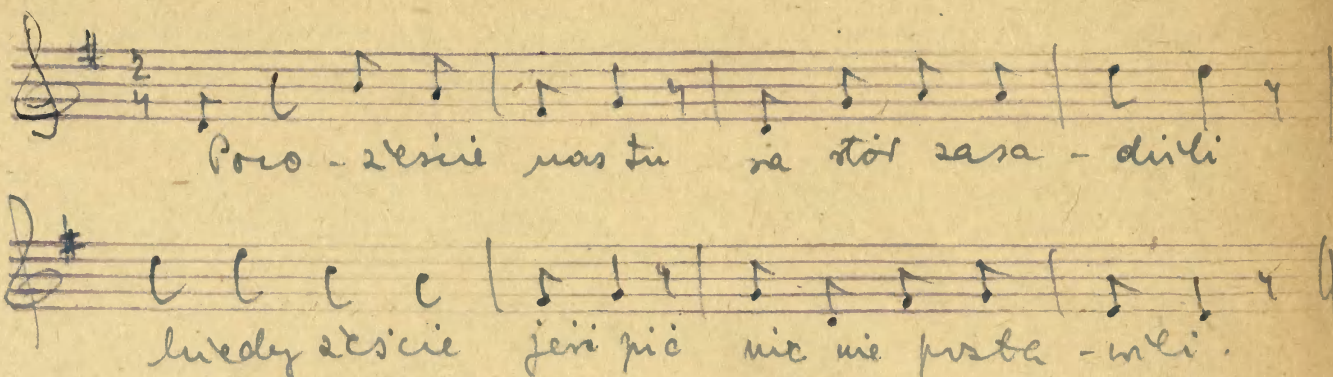 2 4
Poco - żeście nas tu za stół zasa - dzili
kiedy żeście jeść pić nic nie posta - wili.